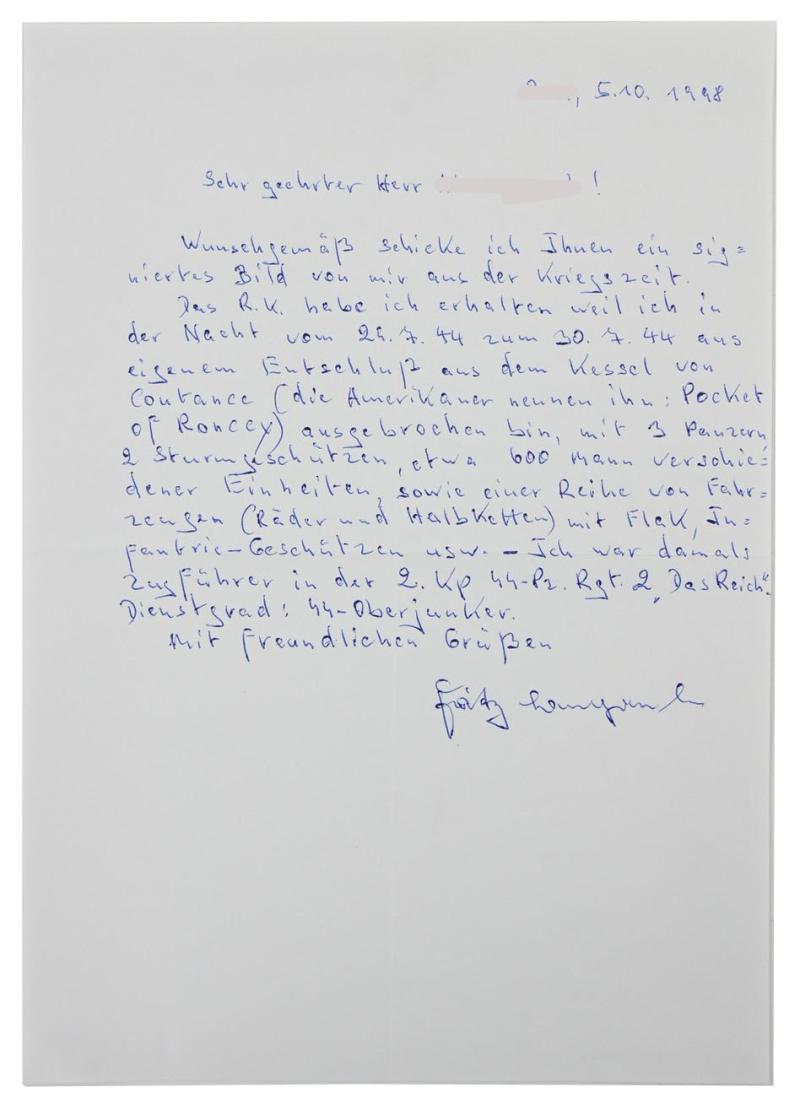 ., 5.10. 1998
Sehr geehrter Herr !
Wunschgemäß schicke ich Ihnen ein sig=
niertes Bild von mir aus der Kriegszeit.
Das R.K. habe ich erhalten weil ich in
der Nacht vom 29. 7. 44 zum 30. 7. 44 aus
eigenem Entschluß aus dem Kessel von
Coutance (die Amerikaner nennen ihn: Pocket
of Roncey) ausgebrochen bin, mit 3 Panzern
2 Sturmgeschützen, etwa 600 Mann verschie=
dener Einheiten, sowie einer Reihe von Fahr=
zeugen (Räder und Halbketten) mit Flak, In=
fantrie-Geschützen usw. - Ich war damals
Zugführer in der 2. Kp SS-Pz. Rgt. 2 „Das Reich".
Dienstgrad: SS-Oberjunker.
Mit freundlichen Grüßen
Fritz Langanke